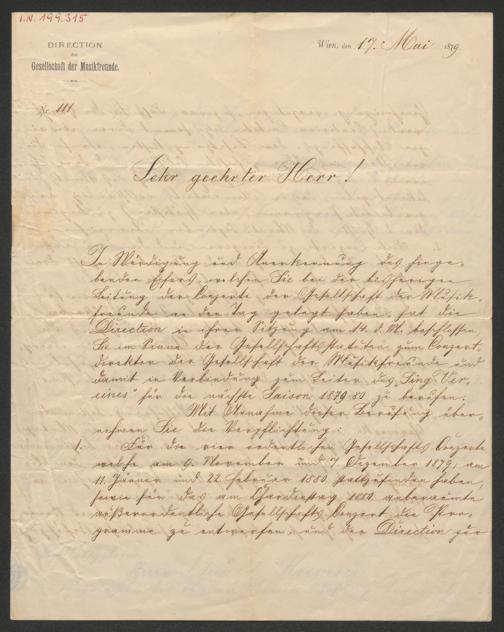 I.N. 199.315
DIRECTION
der
Gesellschaft der Musikfreunde.
Wien, den 17. Mai 1879
№ 111
Sehr geehrter Herr!
In Würdigung und Anerkennung des hinge-
benden Eifers, welchen Sie bei der bisherigen
Leitung der Conzerte der Gesellschaft der Musik-
freunde an den Tag gelegt haben, hat die
Direction in ihrer Sitzung am 14. d. M. beschlossen,
Sie im Sinne der Gesellschaftsstatuten zum Conzert-
direktor der Gesellschaft der Musikfreunde und
damit in Verbindung zum Leiter des „Sing Ver-
eines" für die nächste Saison 1879-80 zu berufen.
Mit Annahme dieser Berufung über-
nehmen Sie die Verpflichtung:
1. Für die vier ordentlichen Gesellschafts Conzerte
welche am 9. November und 7. Dezember 1879, am
11. Jänner und 22. Februar 1880 stattzufinden haben,
sowie für das am Chardienstag 1880 anberaumte
außerordentliche Gesellschafts Conzert die Pro-
gramme zu entwerfen, und der Direction zur